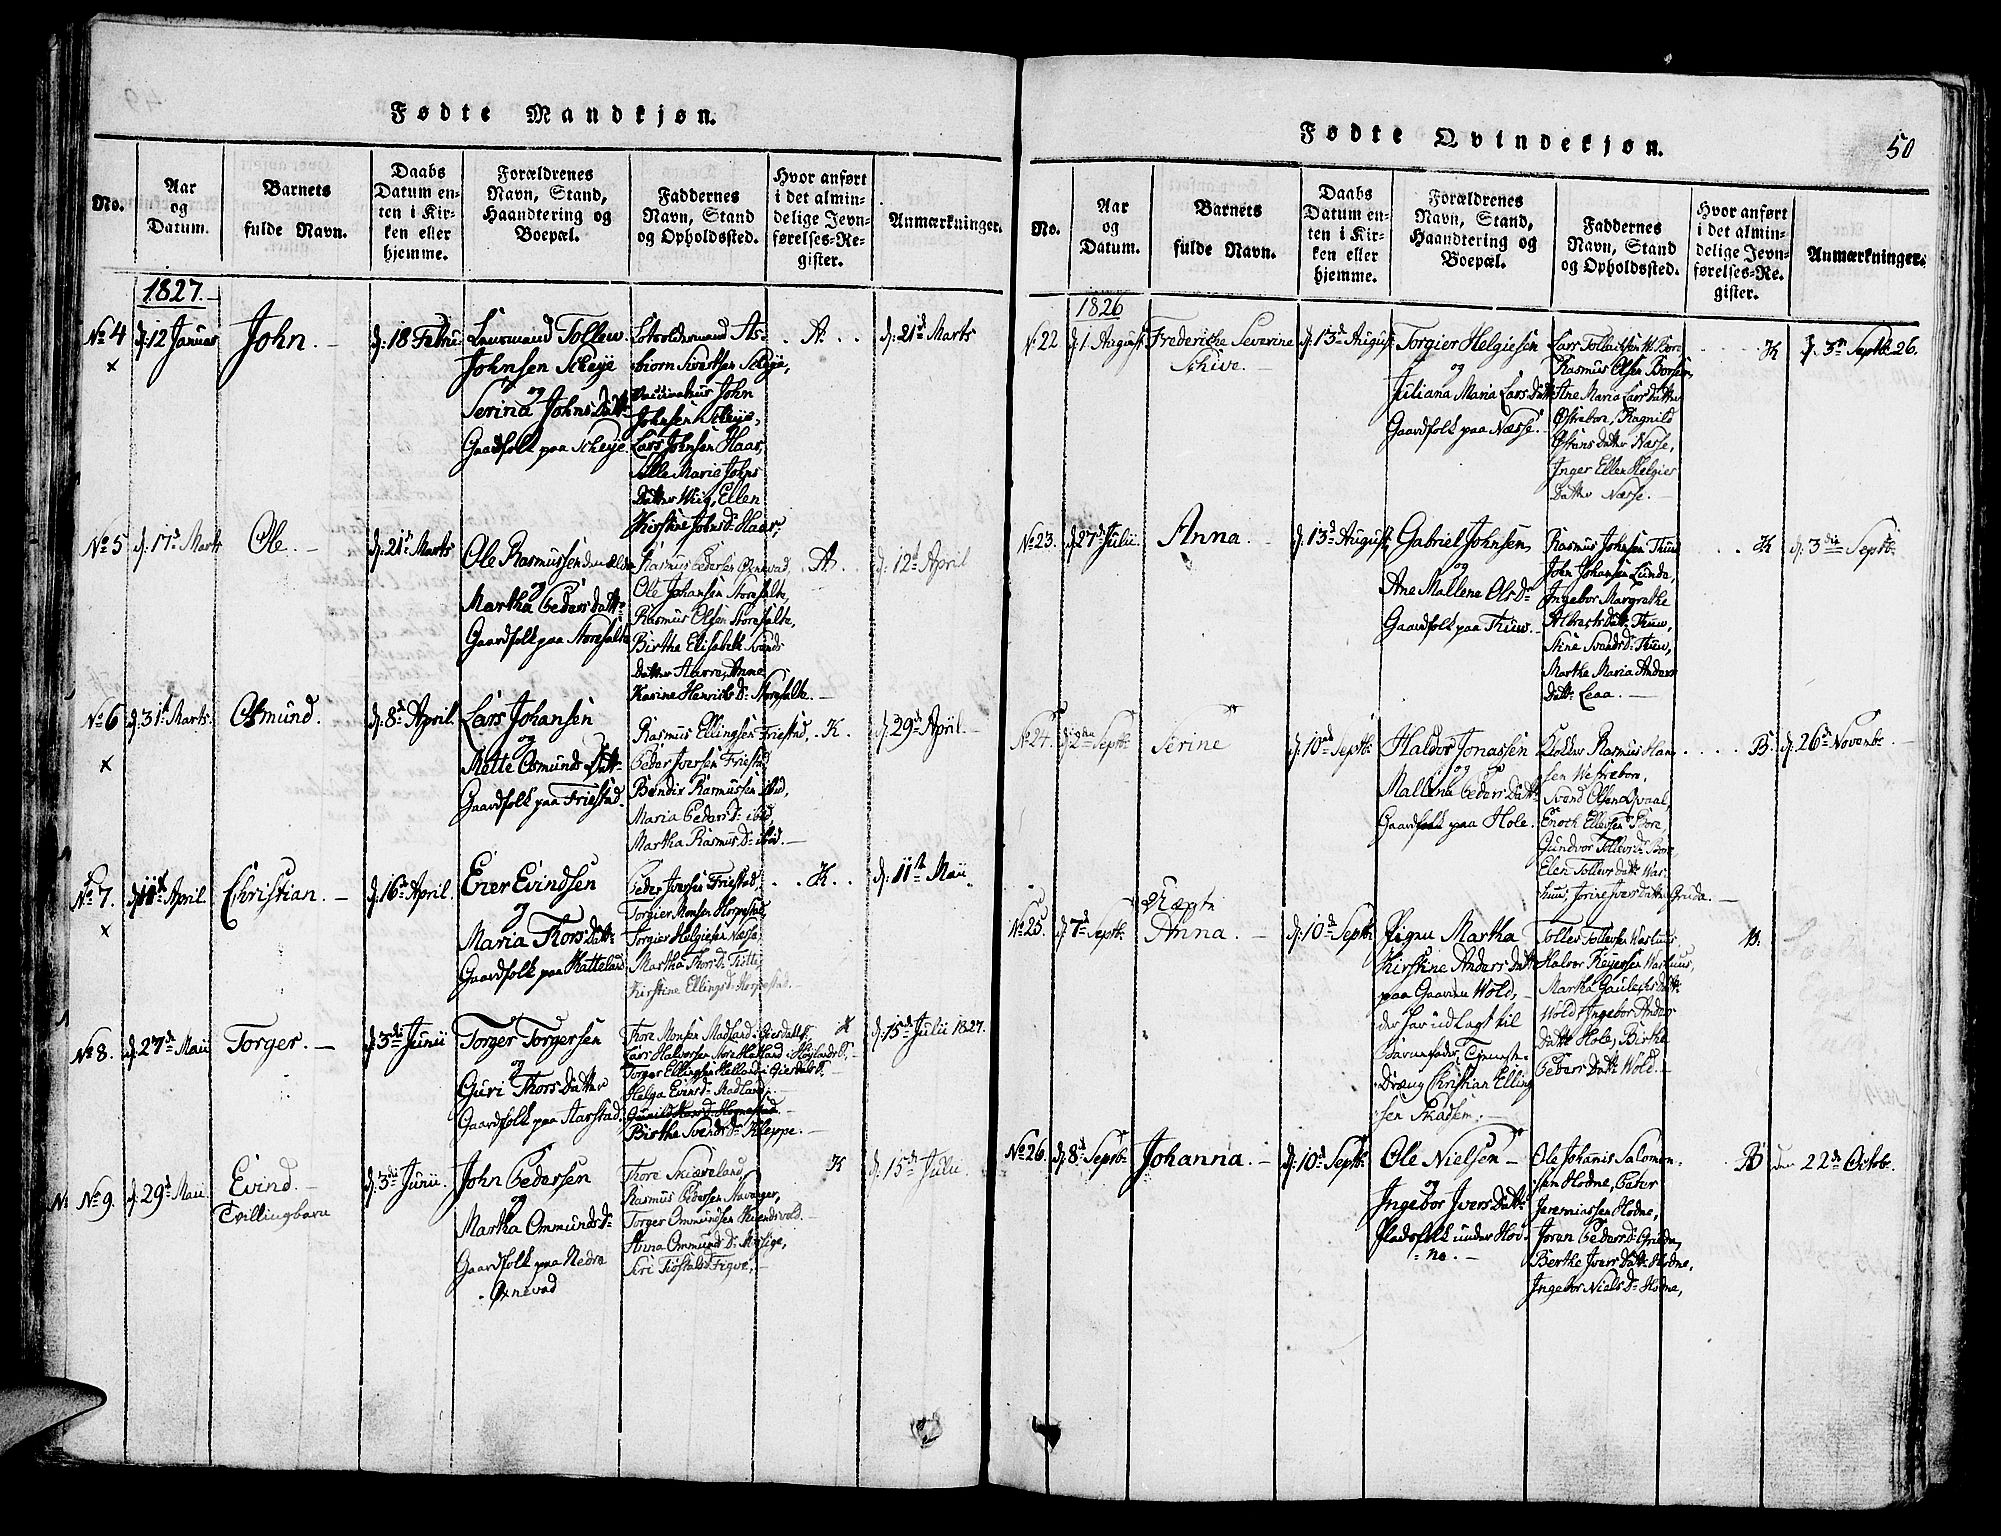 Fødte Mandkjøn.
No.
Aar
og
Datum.
Barnets
fulde Navn.
Daabs
Datum en-
ten i Kir-
ken eller
hjemme.
Forældrenes
Navn, Stand,
Haandtering og
Boepæl.
Faddernes
Navn, Stand
og Opholdssted.
Hvor anført
i det almin-
delige Jevn-
førelses-Re-
gister.
Anmærkninger.
1827.
No 4
d: 12 Januar
John.
d: 18 Febru
Lensmand Tollew
Johnsen Scheije
og
Serina Johns Datt
Gaardfolk paa Scheije.
John
Johnsen Scheije,
Lars Johnsen Haar,
Marie Johns
Datter Wiig, Ellen
Kirstine Johns D: Haar,
A.
d: 21 d Marts
No 5
d: 17 d Marts
Ole.
d: 21 d Marts
Ole Rasmussen den Ælder
og
Martha Peders Datt:
Gaardfolk paa Storesalte
Rasmus Pedersen Øxnevad
Ole Johansen Storesalte,
Rasmus Olsen Storesalte,
Birthe Elisabeth Svends
Datter Anne
Karine Henrichs D: Storesalte.
A.
d: 12 d April
No 6
d: 31 Marts.
Osmund.
d: 8 d April.
Lars Johansen
og
Mette Osmunds Datt
Gaardfolk paa Friestad.
Rasmus Ellingsen Friestad,
Peder Iversen Friestad
Rasmussen ibid,
Maria Peders D: ibid,
Martha Rasmus D: ibid.
K.
d: 29 d April.
No 7.
d: 11 April
Christian.
d: 16 d April.
Eier Evindsen
og
Maria Thors Datt
Gaardfolk paa Katteland
Peder Iversen Friestad,
Torgier Monsen Horpestad,
Torgier Helgiesen Næsse,
Martha Thors D: Tiøtte,
Kirstine Ellings D: Horpestad.
K.
d: 11 te Maii
No 8.
d: 27 d Maii
Torger.
d: 3 di Junii
Torger Torgersen
og
Guri Thors Datter
Gaardfolk paa Aarstad.
Thore Monsen Madland i Giesdal,
Lars Halvorsen Nore Hatland i Høyland
Torger Ellingsen Helland i Giesdal
Helga Evinds D: Madland,
Birthe Svends D: Kleppe.
K
d: 15 d Julii 1827.
No 9.
d: 29 d Maii
Evind.
Tvillingbarn
d: 3 di Junii.
John Pedersen
og
Martha Ommunds D:
Gaardfolk paa Nedre
Øxnevad
Thore Skiæveland,
Rasmus Pedersen Stavanger,
Torger Ommundsen
Anna Ommunds D:
Siri
K
d: 15 d Julii.
Fødte Qvindekjøn.
50
No.
Aar
og
Datum.
Barnets
fulde Navn.
Daabs
Datum en-
ten i Kir-
ken eller
hjemme.
Forældrenes
Navn, Stand,
Haandtering og
Boepæl.
Faddernes
Navn, Stand
og Opholdssted.
Hvor anført
i det almin-
delige Jevn-
førelses-Re-
gister.
Anmærkninger.
1826
No 22
d: 1 August
Frederiche Severine
Schive.
d: 13 d August
Torgier Helgiesen
og
Juliana Maria Lars Datt
Gaardfolk paa Næsse.
Rasmus Olsen Borsen,
Ane Maria Lars Datter
Østrebør, Ragnild
Datter Næsse,
Inger Ellen Helgies
Datter Næsse.
K
d: 3 Septbr 26.
No 23.
d: 27 d Julii
Anna.
d: 13 d August
Gabriel Johnsen
og
Ane Mallene Ols D:
Gaardfolk paa Thuw.
Rasmus Johnsen Thuw
John Johansen Lunde,
Ingebor Margrethe
Alberts Datt: Thuw,
Stine Svends D: Thuw,
Martha Maria Anders
Datt: Leaa.
K
d: 3 die Septbr.
No 24.
d: 2 Septbr
Serine
d: 10 d Septbr
Haldor Jonassen
og
Mallena Peders Datt:
Gaardfolk paa Hole.
Klokker Rasmus Han-
sen Westrebøn,
Svend Olsen
Enoch Ellefsen Bore,
Gundvor Tollevs D: Bore
Elen Tollevs Datt: War-
huus, Jorine Ivers Datter Gruda.
B.
d: 26 d Novenbr
No 25.
d: 7 d Septbr
Anna.
d: 10 d Septbr
Pigen Martha
Kirstine Anders Datt
paa Gaarden Wold,
der har udlagt til
Barnefader, Tjeneste-
Dræng Christian Elling
sen Skadsem.
Tolles Tollefsen Warhuus
Halvor Reyersen Warhuus,
Martha Datt:
Wold, Ingebor Anders
Datt: Hole, Birthe
Peders Datt: Wold.
B.
No 26.
d: 8 d Septbr
Johanna.
d: 10 d Septbr
Ole Nielsen
og
Ingebor Ivers Datt:
Pladsfolk under Hod-
ne.
Ole Johanis Salomon-
sen Hodne, Peter
Jeremiassen Hodne,
Joren Peders D: Gruda,
Berthe Ivers Datt: Hodne,
Ingebor Niels D: Hodne,
B
den 22 d Octob.